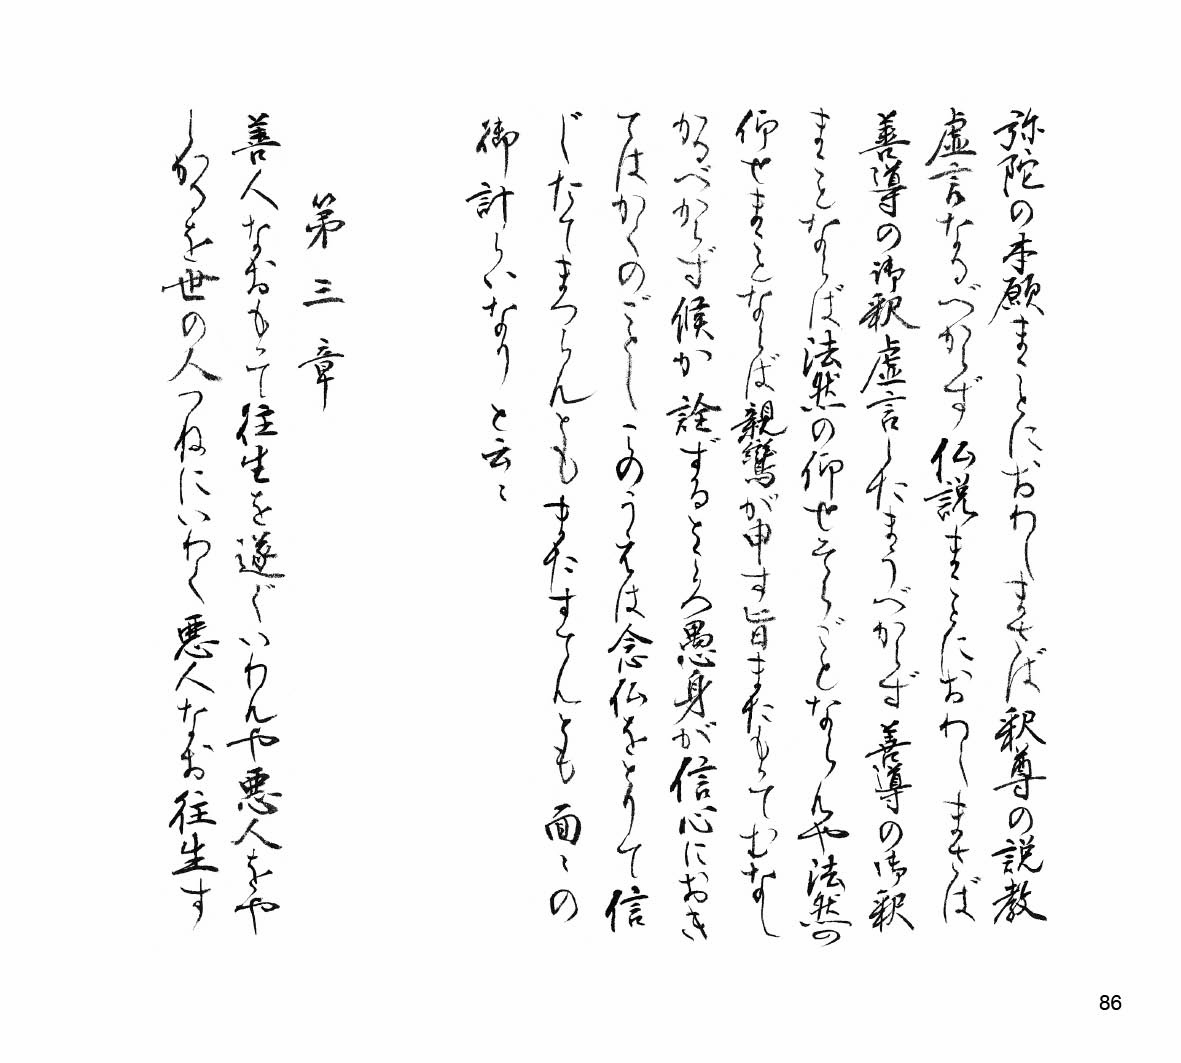 弥陀の本願まことにおわしまさば釈尊の説教
虚言なるべからず仏説まことにおわしまさば
善導の御釈虚言したまうべからず善導の御釈
まことならば法然の仰せそらごとならんや法然の
仰せまことならば親鸞が申す旨またもってむなし
かるべからず候か詮ずるところ愚身が信心におき
てはかくのごとしこのうえは念仏をとりて信
じたてまつらんともまたすてんとも面々の
御計らいなりと云々
第三章
善人なおもって往生を遂ぐいわんや悪人をや
しかるを世の人つねにいわく悪人なお往生す
86